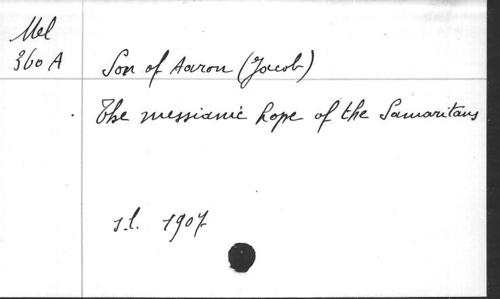 Mel
360 A
Son of Aaron (Jacob)
The messianic hope of the Samaritans
s.l. 1907